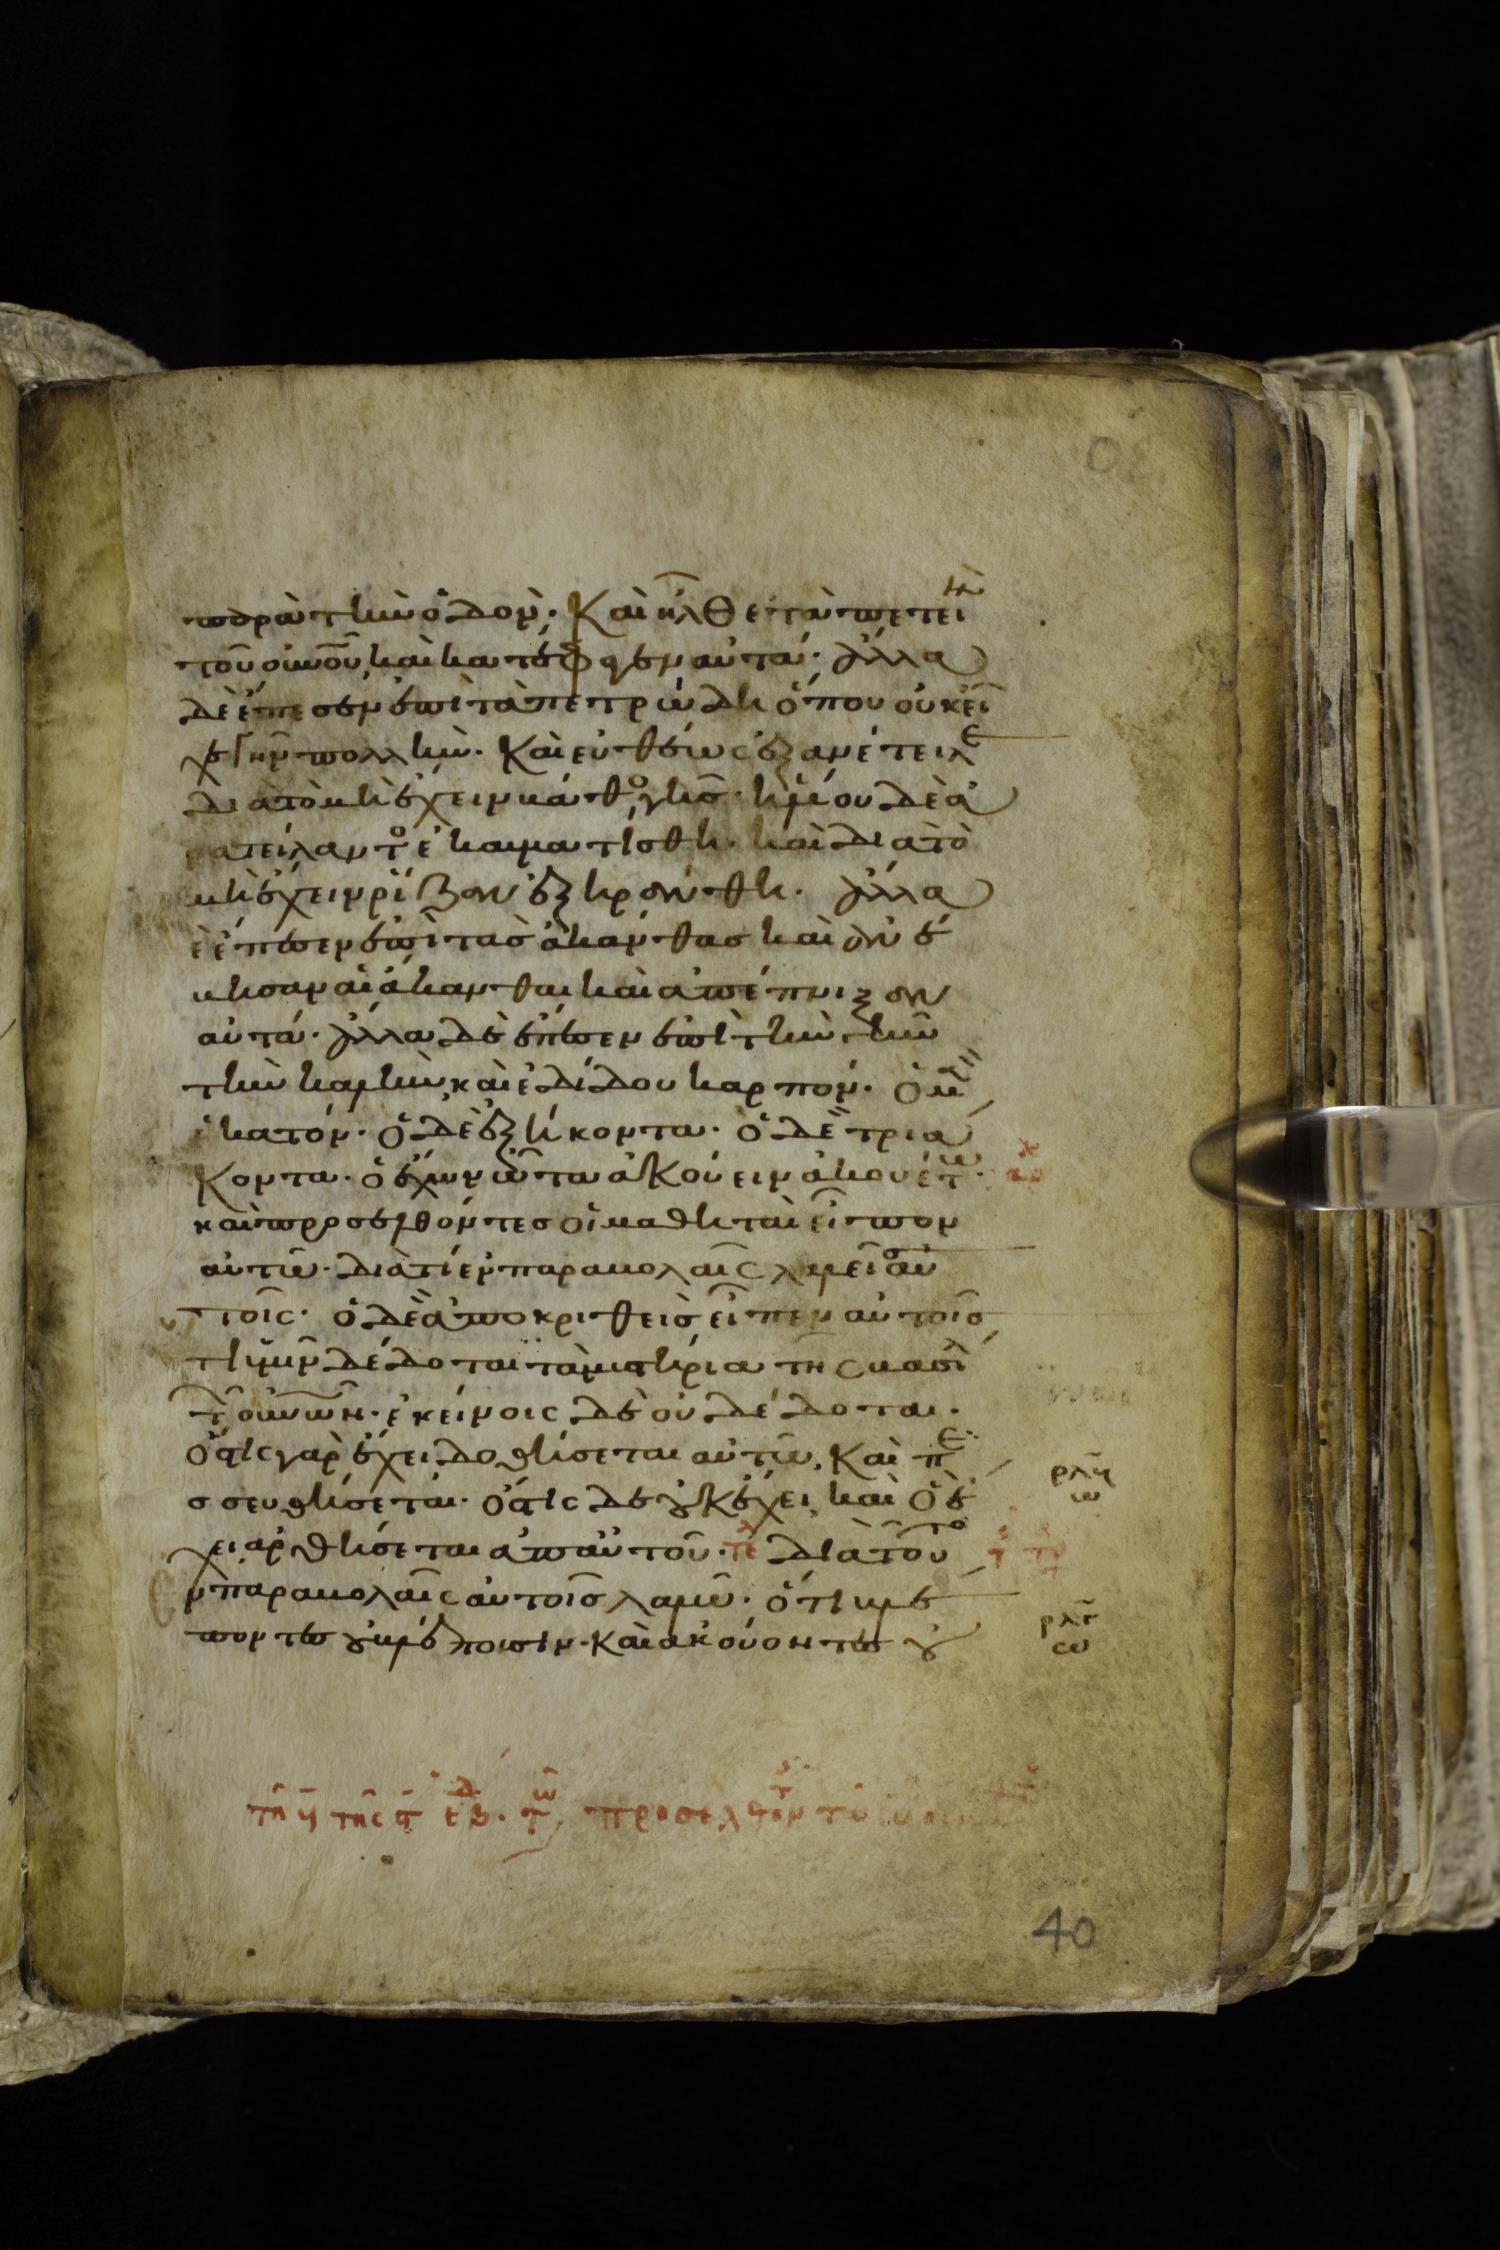 παρὰ τὴν ὁδόν· Καὶ ἦλθε τὰ πετεινὰ
τοῦ οὐνοῦ καὶ κατέφαγεν αὐτά· Ἄλλα
δὲ ἔπεσεν ἐπὶ τὰ πετρώδη ὅπου οὐκ εἶ
χε γῆν πολλήν· Καὶ εὐθέως ἐξανέτειλε
διὰ τὸ μὴ ἔχειν βάθος γῆς· ἡλίου δὲ ἀ
νατείλαντο ἐκαυματίσθη· καὶ διὰ τὸ
μὴ ἔχειν ῥίζαν ἐξηράνθη· Ἄλλα
ὲ ἔπεσεν ἐπὶ τὰς ἀκάνθας καὶ ἀνέ
βησαν αἱ ἄκανθαι καὶ ἀπέπνιξαν
αὐτά· Ἄλλα δὲ ἔπεσεν ἐπὶ τὴν γῆν
τὴν καλὴν καὶ ἐδίδου καρπόν· Ὁ μὲν
ἑκατόν· Ὁ δὲ ἑξήκοντα· Ὁ δὲ τριά
κοντα· ὁ ἔχων ὦτα ἀκούειν ἀκουέτω·
καὶ προσελθόντες οἱ μαθηταὶ εἶπον
αὐτῶ· διὰ τί ἐν παραβολαῖς λαλεῖς αὐ
τοῖς· ὁ δὲ ἀποκριθεὶς εἶπεν αὐτοῖς
τι ὑμῖν δέδοται τὰ μυστήρια τῆς βασι
τῶν οὐνῶν· ἐκείνοις δὲ οὐ δέδοται·
Ὅστις γὰρ ἔχει δοθήσεται αὐτῶ, Καὶ πε
σσευθήσεται· Ὅστις δὲ οὐκ ἔχει, καὶ ὃ ἔ
χει ἀρθήσεται ἀπ αὐτοῦ· τε Διὰ τοῦτο
ἐν παραβολαῖς αὐτοῖς λαλῶ· ὅτι βλέ
ποντες οὐ βλέπουσιν· Καὶ ἀκούοντες οὐ
ρλγ
ρλδ
τῆ τῆς ἑβδ. τῶ προσελθὸν
40